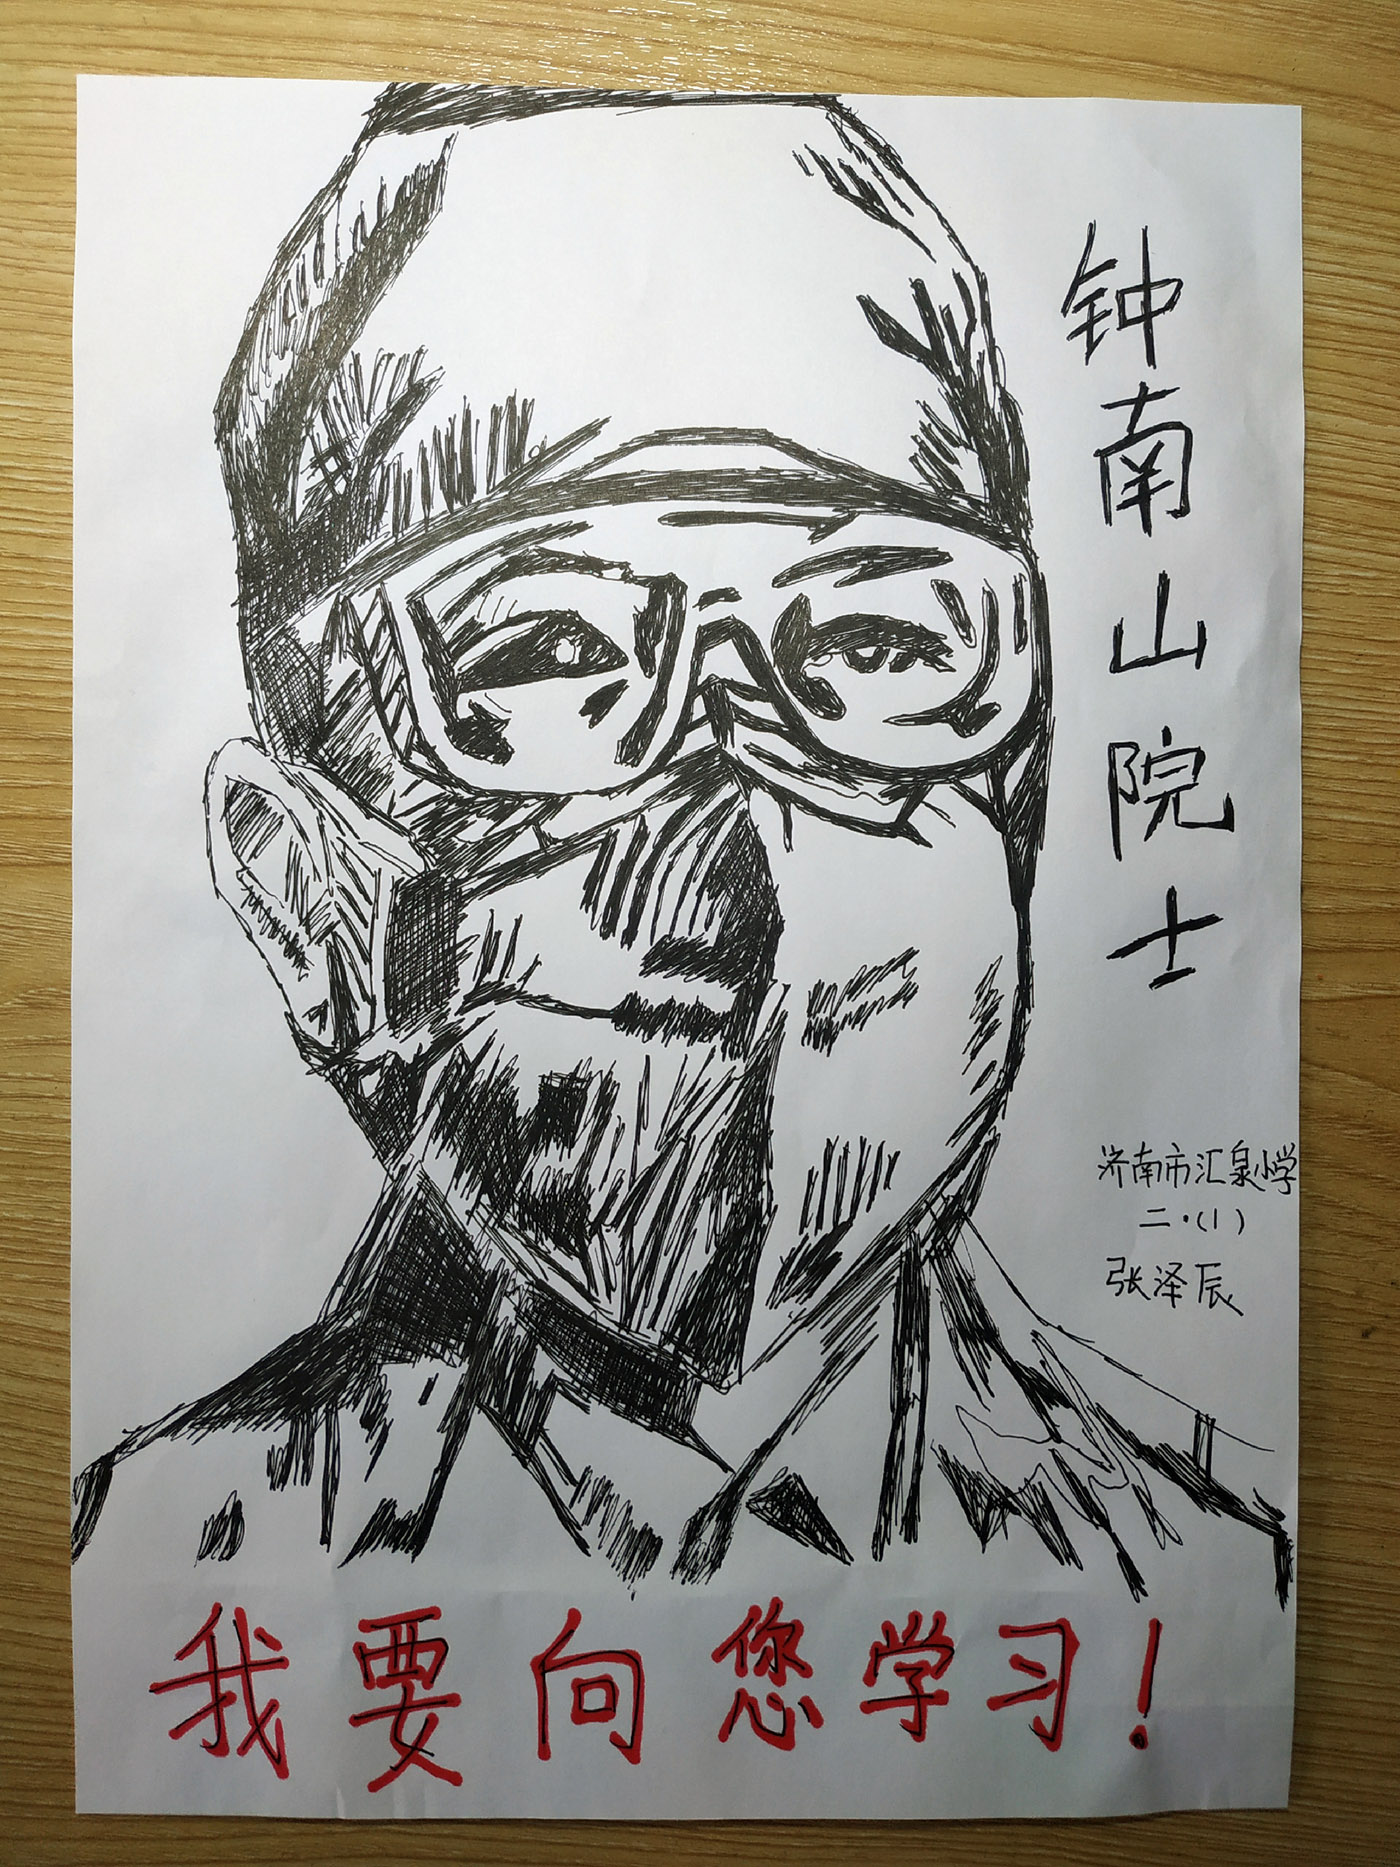 钟南山院士
济南市汇泉小学
二·(1)
张泽辰
我要向您学习!